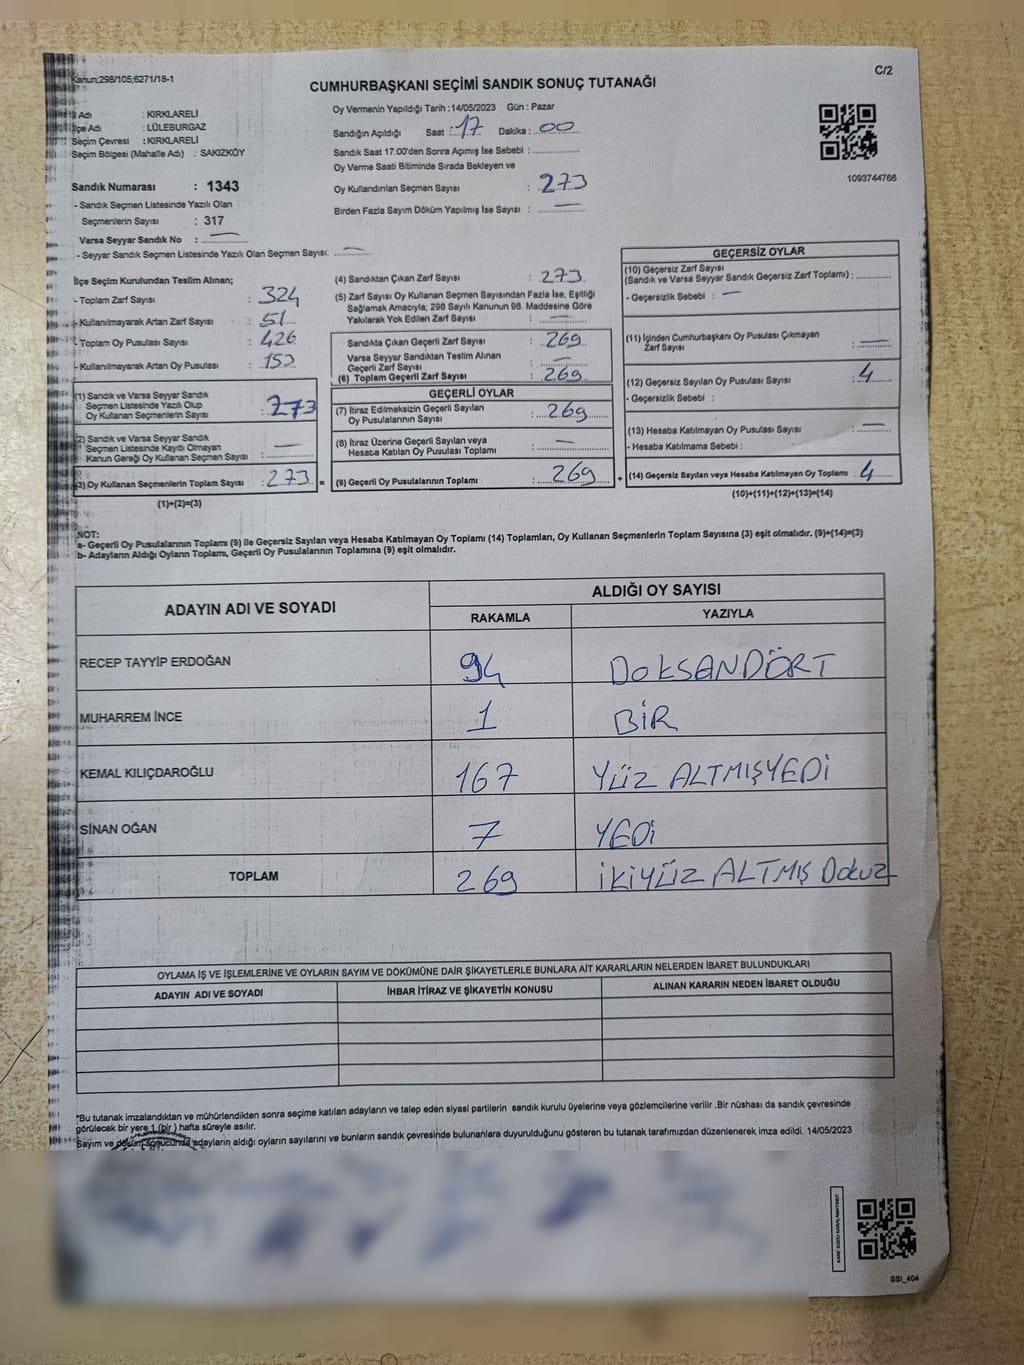 Kanun;298/105,6271/18-1
C/2
CUMHURBAŞKANI SEÇİMİ SANDIK SONUÇ TUTANAĞI
İl Adı : KIRKLARELİ
İlçe Adı : LÜLEBURGAZ
Seçim Çevresi : KIRKLARELİ
Seçim Bölgesi (Mahalle Adı) : SAKIZKÖY
Sandık Numarası : 1343
- Sandık Seçmen Listesinde Yazılı Olan
Seçmenlerin Sayısı : 317
Varsa Seyyar Sandık No : —
- Seyyar Sandık Seçmen Listesinde Yazılı Olan Seçmen Sayısı: —
Oy Vermenin Yapıldığı Tarih : 14/05/2023 Gün : Pazar
Sandığın Açıldığı Saat : 17 Dakika : 00
Sandık Saat 17.00'den Sonra Açılmış İse Sebebi :
Oy Verme Saati Bitiminde Sırada Bekleyen ve
Oy Kullandırılan Seçmen Sayısı : 273
Birden Fazla Sayım Döküm Yapılmış İse Sayısı : —
1093744766
İlçe Seçim Kurulundan Teslim Alınan;
- Toplam Zarf Sayısı : 324
- Kullanılmayarak Artan Zarf Sayısı : 51
- Toplam Oy Pusulası Sayısı : 426
- Kullanılmayarak Artan Oy Pusulası : 153
(1) Sandık ve Varsa Seyyar Sandık
Seçmen Listesinde Yazılı Olup
Oy Kullanan Seçmenlerin Sayısı : 273
(2) Sandık ve Varsa Seyyar Sandık
Seçmen Listesinde Kayıtlı Olmayan
Kanun Gereği Oy Kullanan Seçmen Sayısı : —
(3) Oy Kullanan Seçmenlerin Toplam Sayısı : 273 =
(1)+(2)=(3)
(4) Sandıktan Çıkan Zarf Sayısı : 273
(5) Zarf Sayısı Oy Kullanan Seçmen Sayısından Fazla İse, Eşitliği
Sağlamak Amacıyla; 298 Sayılı Kanunun 98. Maddesine Göre
Yakılarak Yok Edilen Zarf Sayısı : —
Sandıkta Çıkan Geçerli Zarf Sayısı : 269
Varsa Seyyar Sandıktan Teslim Alınan
Geçerli Zarf Sayısı : —
(6) Toplam Geçerli Zarf Sayısı : 269
GEÇERLİ OYLAR
(7) İtiraz Edilmeksizin Geçerli Sayılan
Oy Pusulasının Sayısı : 269
(8) İtiraz Üzerine Geçerli Sayılan veya
Hesaba Katılan Oy Pusulası Toplamı : —
(9) Geçerli Oy Pusulalarının Toplamı : 269 +
GEÇERSİZ OYLAR
(10) Geçersiz Zarf Sayısı
(Sandık ve Varsa Seyyar Sandık Geçersiz Zarf Toplamı) :
- Geçersizlik Sebebi : —
(11) İçinden Cumhurbaşkanı Oy Pusulası Çıkmayan
Zarf Sayısı : —
(12) Geçersiz Sayılan Oy Pusulası Sayısı : 4
- Geçersizlik Sebebi :
(13) Hesaba Katılmayan Oy Pusulası Sayısı : —
- Hesaba Katılmama Sebebi :
(14) Geçersiz Sayılan veya Hesaba Katılmayan Oy Toplamı : 4
(10)+(11)+(12)+(13)=(14)
NOT:
a- Geçerli Oy Pusulalarının Toplamı (9) ile Geçersiz Sayılan veya Hesaba Katılmayan Oy Toplamı (14) Toplamları, Oy Kullanan Seçmenlerin Toplam Sayısına (3) eşit olmalıdır. (9)+(14)=(3)
b- Adayların Aldığı Oyların Toplamı, Geçerli Oy Pusulalarının Toplamına (9) eşit olmalıdır.
ADAYIN ADI VE SOYADI
ALDIĞI OY SAYISI
RAKAMLA YAZIYLA
RECEP TAYYİP ERDOĞAN 94 DOKSANDÖRT
MUHARREM İNCE 1 BİR
KEMAL KILIÇDAROĞLU 167 YÜZ ALTMIŞYEDİ
SİNAN OĞAN 7 YEDİ
TOPLAM 269 İKİYÜZ ALTMIŞ DOKUZ
OYLAMA İŞ VE İŞLEMLERİNE VE OYLARIN SAYIM VE DÖKÜMÜNE DAİR ŞİKAYETLERLE BUNLARA AİT KARARLARIN NELERDEN İBARET BULUNDUKLARI
ADAYIN ADI VE SOYADI İHBAR İTİRAZ VE ŞİKAYETİN KONUSU ALINAN KARARIN NEDEN İBARET OLDUĞU
*Bu tutanak imzalandıktan ve mühürlendikten sonra seçime katılan adayların ve talep eden siyasi partilerin sandık kurulu üyelerine veya gözlemcilerine verilir .Bir nüshası da sandık çevresinde
görülecek bir yere 1 (bir ) hafta süreyle asılır.
Sayım ve döküm sonucunda adayların aldığı oyların sayılarını ve bunların sandık çevresinde bulunanlara duyurulduğunu gösteren bu tutanak tarafımızdan düzenlenerek imza edildi. 14/05/2023
SSI_404